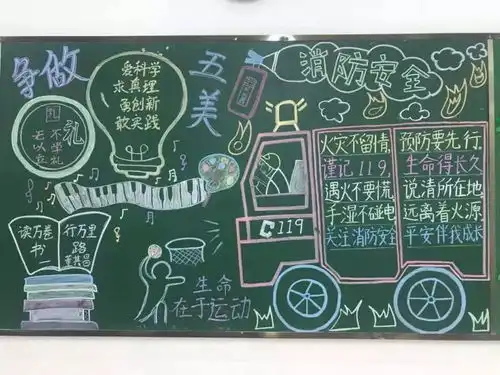 争做
五美
爱科学
求真理
勇创新
敢实践
礼
不学礼
无以立
读万卷
书
行万里
路
生命
在于运动
消防安全
119
火灾不留情,
谨记119,
遇火不要慌,
手湿不碰电
关注消防安全
预防要先行.
生命得长久
说清所在地
远离着火源
平安伴我成长